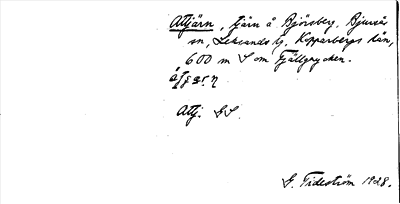 Attjärn, tjärn å Björsberg, Bjursås
sn, Leksands tg, Kopparbergs län,
600 m S om Fjällgrycken.
Attj. S S.
G. Tideström 1928.